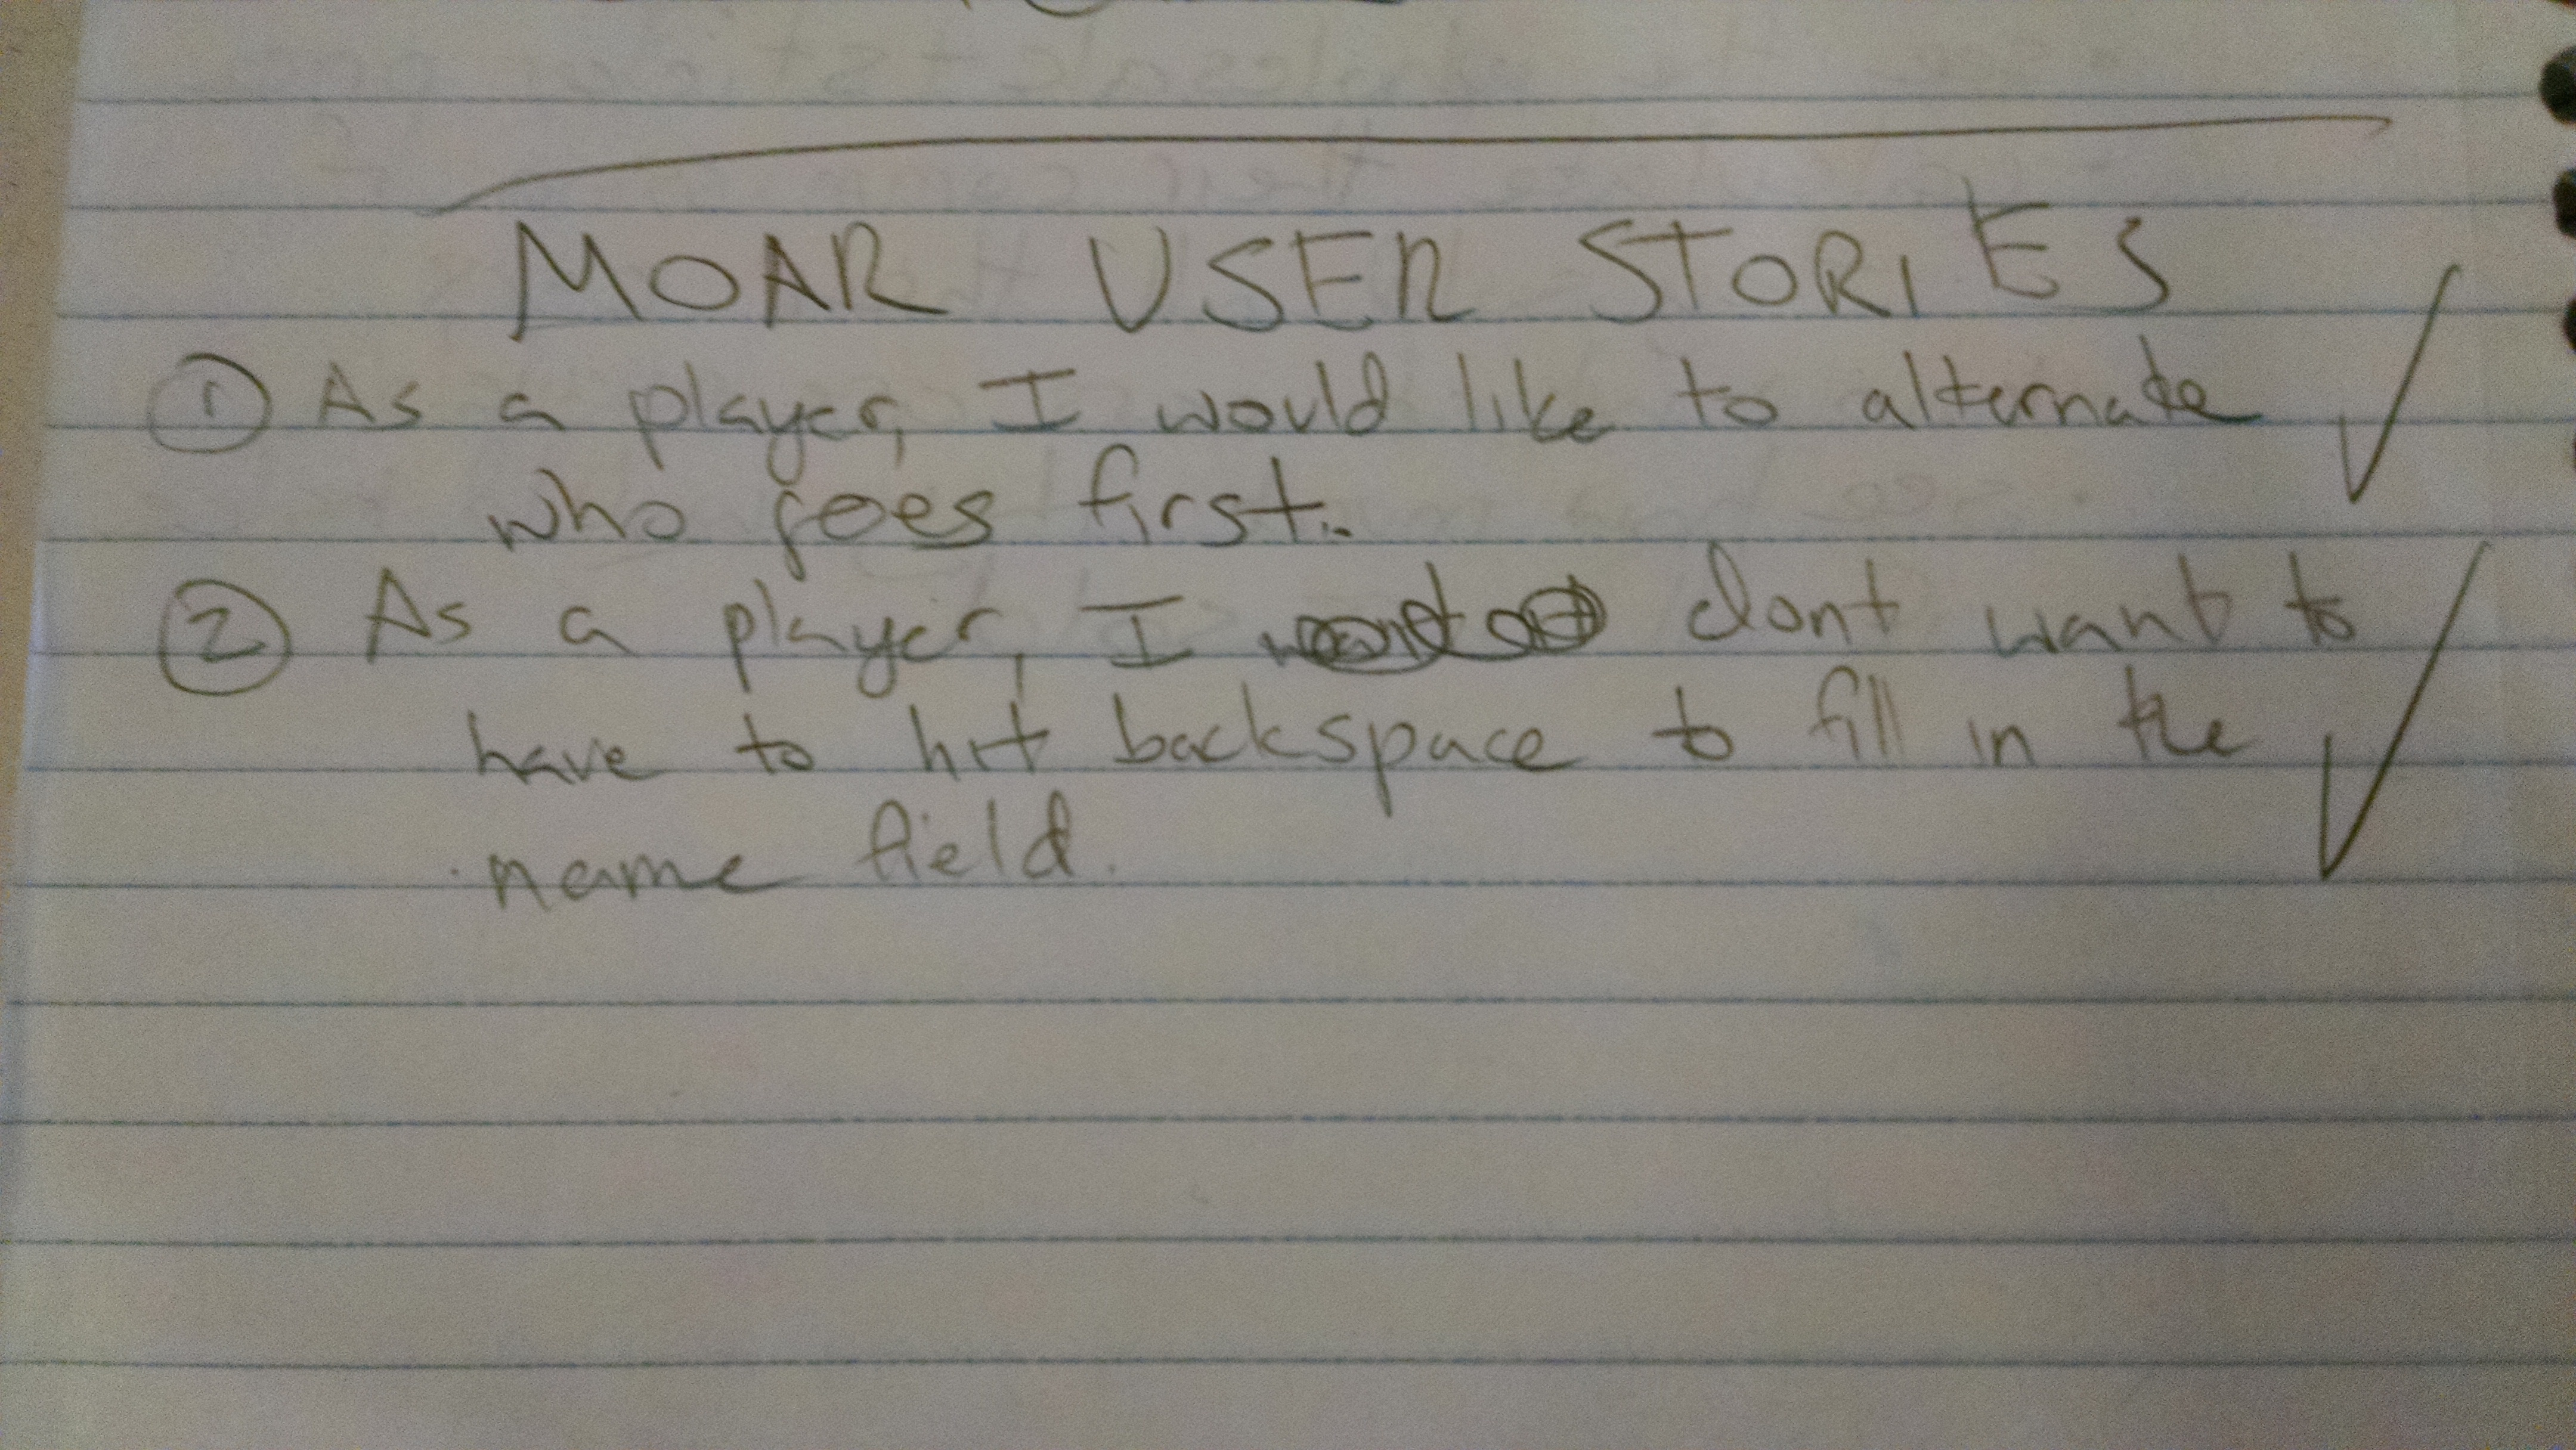 MOAR USER STORIES
① As a player, I would like to alternate ✓
who goes first.
② As a player, I dont want to
have to hit backspace to fill in the ✓
name field.